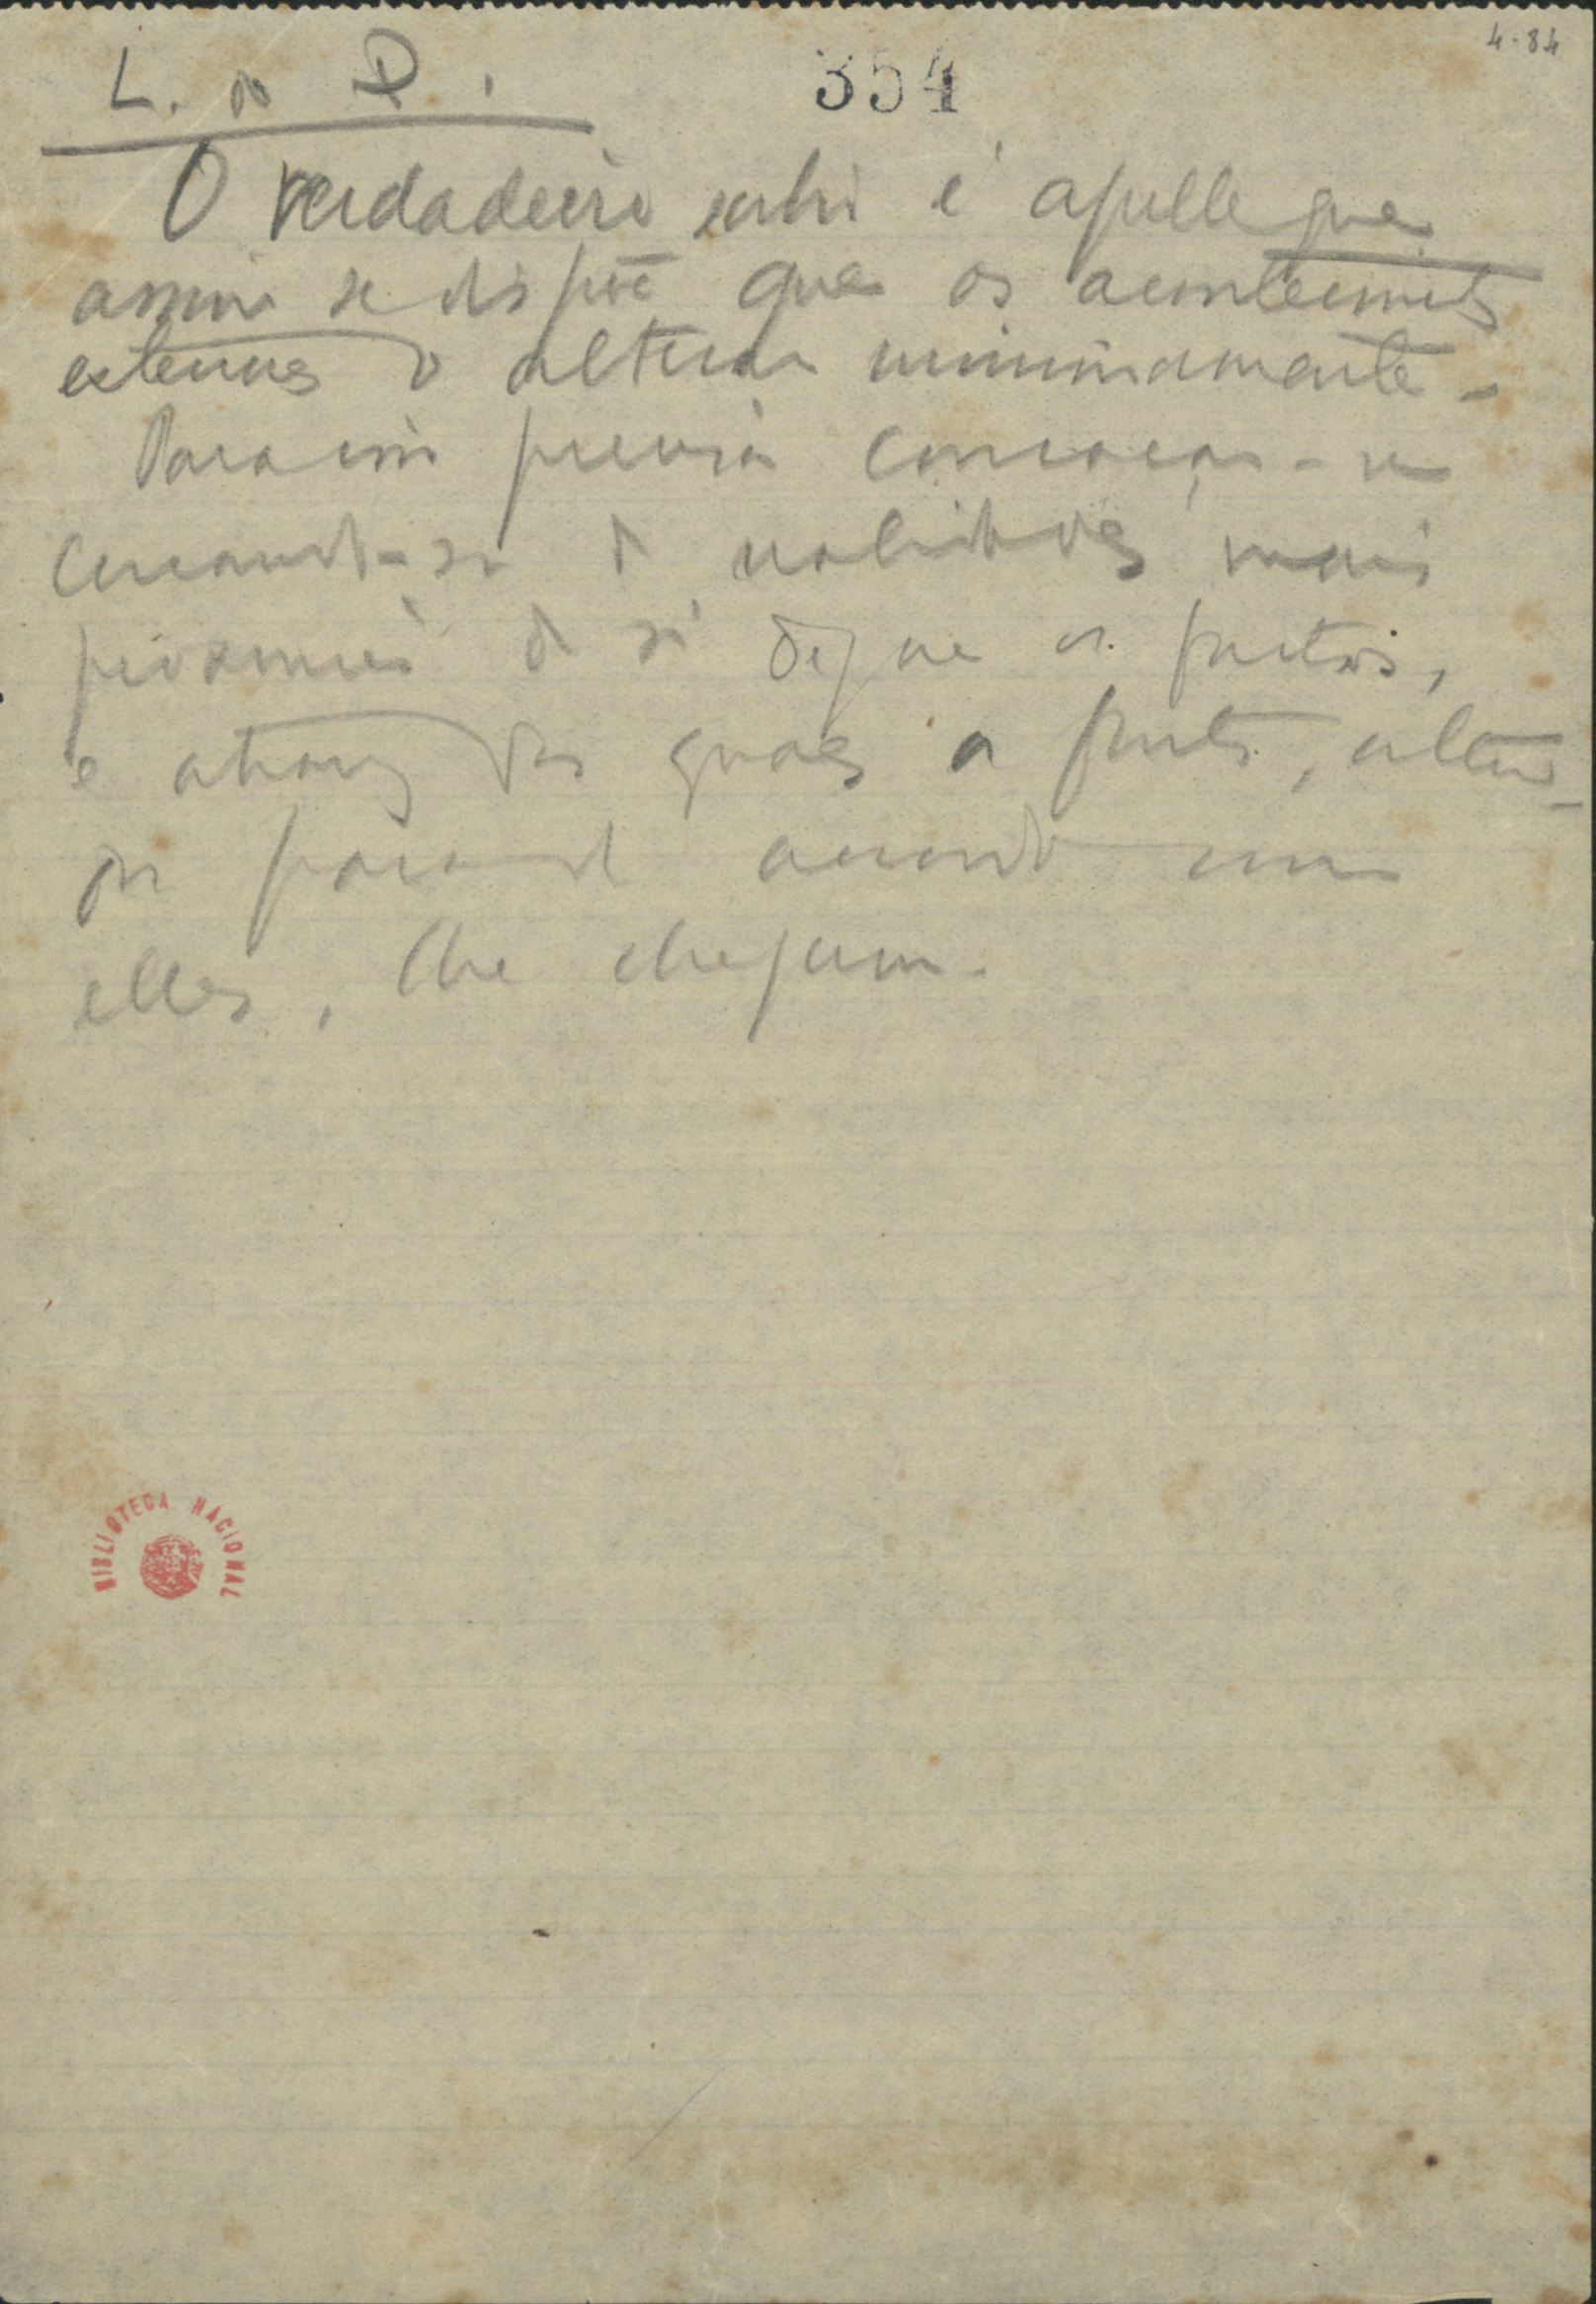 L. do D.
354
4-84
O verdadeiro sabio é aquelle que
assim se dispõe que os acontecimentos
externos o alteram minimamente.
Para isso precisa couraçar-se
cercando-se de realidades mais
proximas de si do que os factos,
e atravez das quaes os factos, altera-
dos para de accordo com
ellas, lhe chegam.
BIBLIOTECA NACIONAL